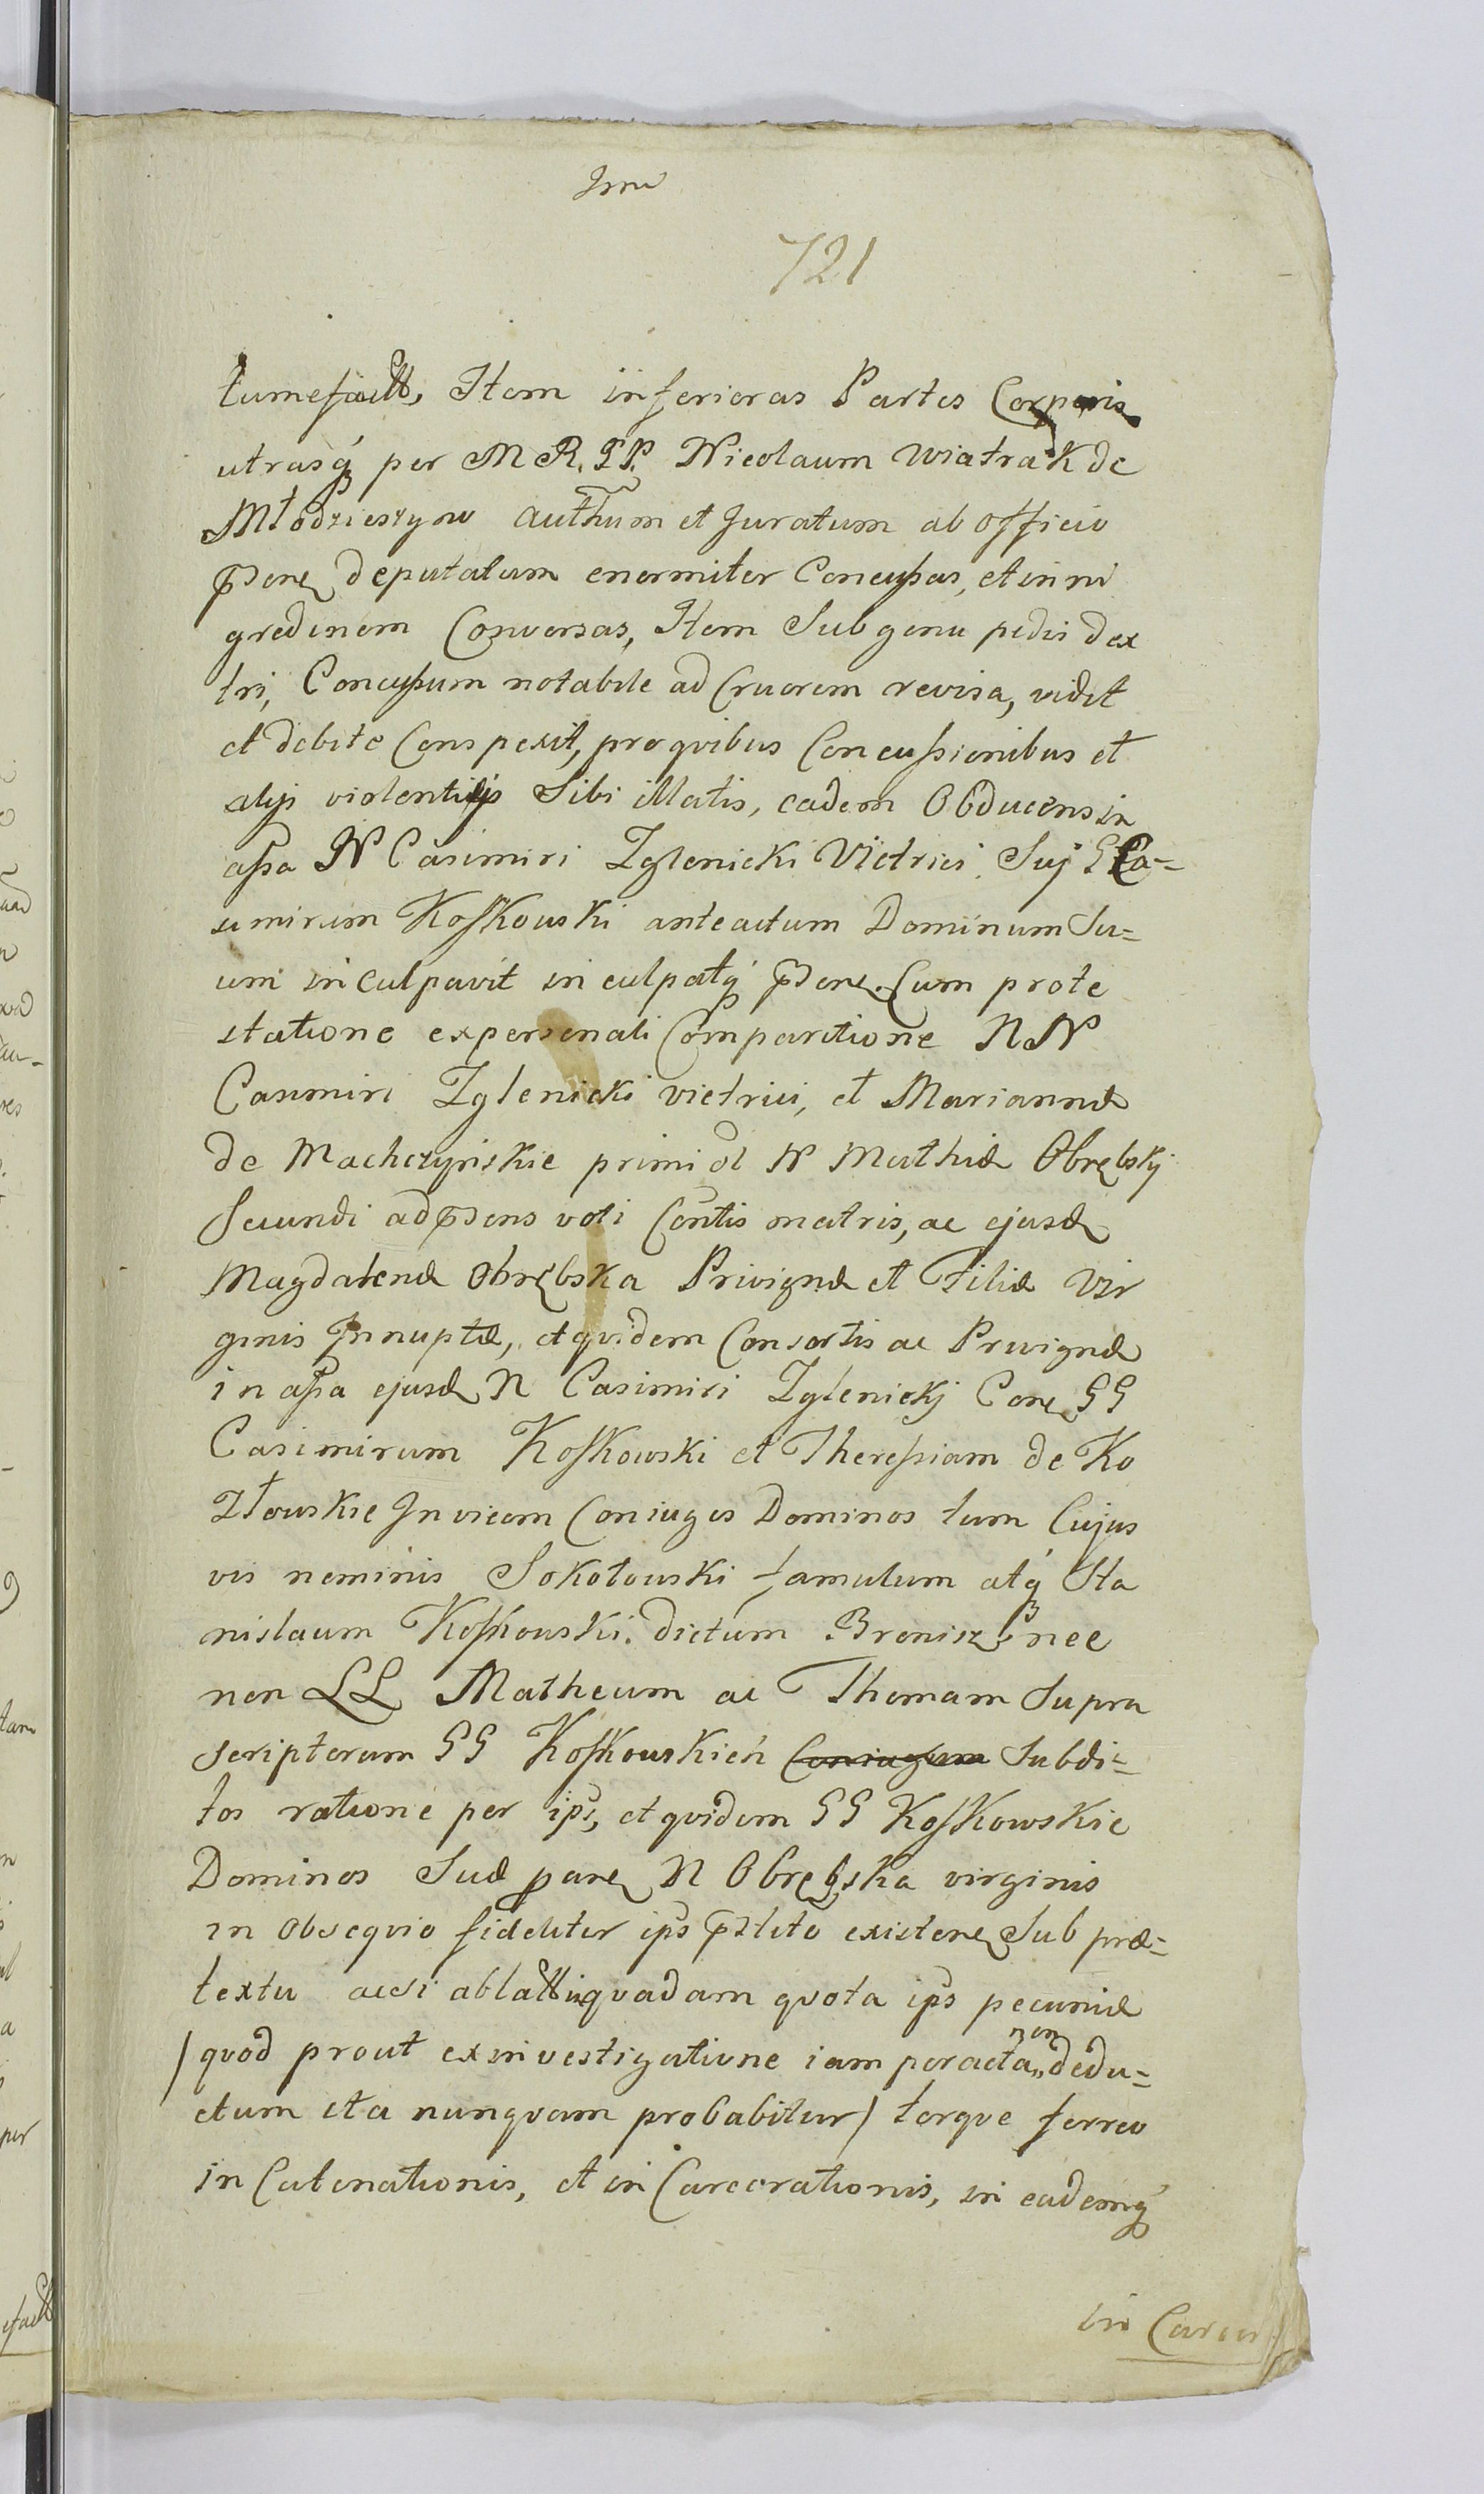 721
tumefact, Item inferioras Partes Corporis
utrasq́ per M R. PP. Nicolaum Wiatrak de
Młodzieszyno authum et Juratum ab officio
pdens deputatum enormiter Concussas, et in ni
gredinem Conversas, Item Sub genu pedis dex
tri, Concussum notabile ad Cruorem revisa, vidit
et debite Conspexit, pro quibus Concussionibus et
alijs violentijs Sibi illatis, eadem Obducens in
assa N Casimiri Zglenicki Vietrici Suj G Ca=
simirum Kosskowski anteactum Dominum Su=
um inculpavit inculpatq́ pdens. Cum prote
statione ex personali Comparitione NN
Casimiri Zglenicki vietrici, et Mariannæ
de Machczyńskie primi ol N Mathiæ Obrębskj
Secundi ad pdens voti Contis matris, ac ejusd
Magdalenæ Obrębska Privignæ et Filiæ Vir
ginis Innuptæ, et quidem Consortis ac Privignæ
in assa ejusd N Casimiri Zglenickj Con GG
Casimirum Kosskowski et Theressiam de Ko
złowskie Invicem Coniuges Dominos tum Cujus
vis neminis Sokołowski famulum atq́ Sta
nislaum Kosskowski dictum Bronisz nec
non LL Matheum ac Thomam Supra
scriptorum GG Kosskowskich Coniugum Subdi=
tos ratione per ips, et quidem GG Kosskowskie
Dominos Suæ paræ N Obrębska virginis
in Obsequio fideliter ips pstito existens Sub præ=
textu acsi ablatti quadam quota ips pecuniæ
/quod prout ex investigatione iam peracta non dedu=
ctum ita nunquam probabitur/ torque ferreo
in Catenationis, et in Carcerationis, in eademq́
in Carcer